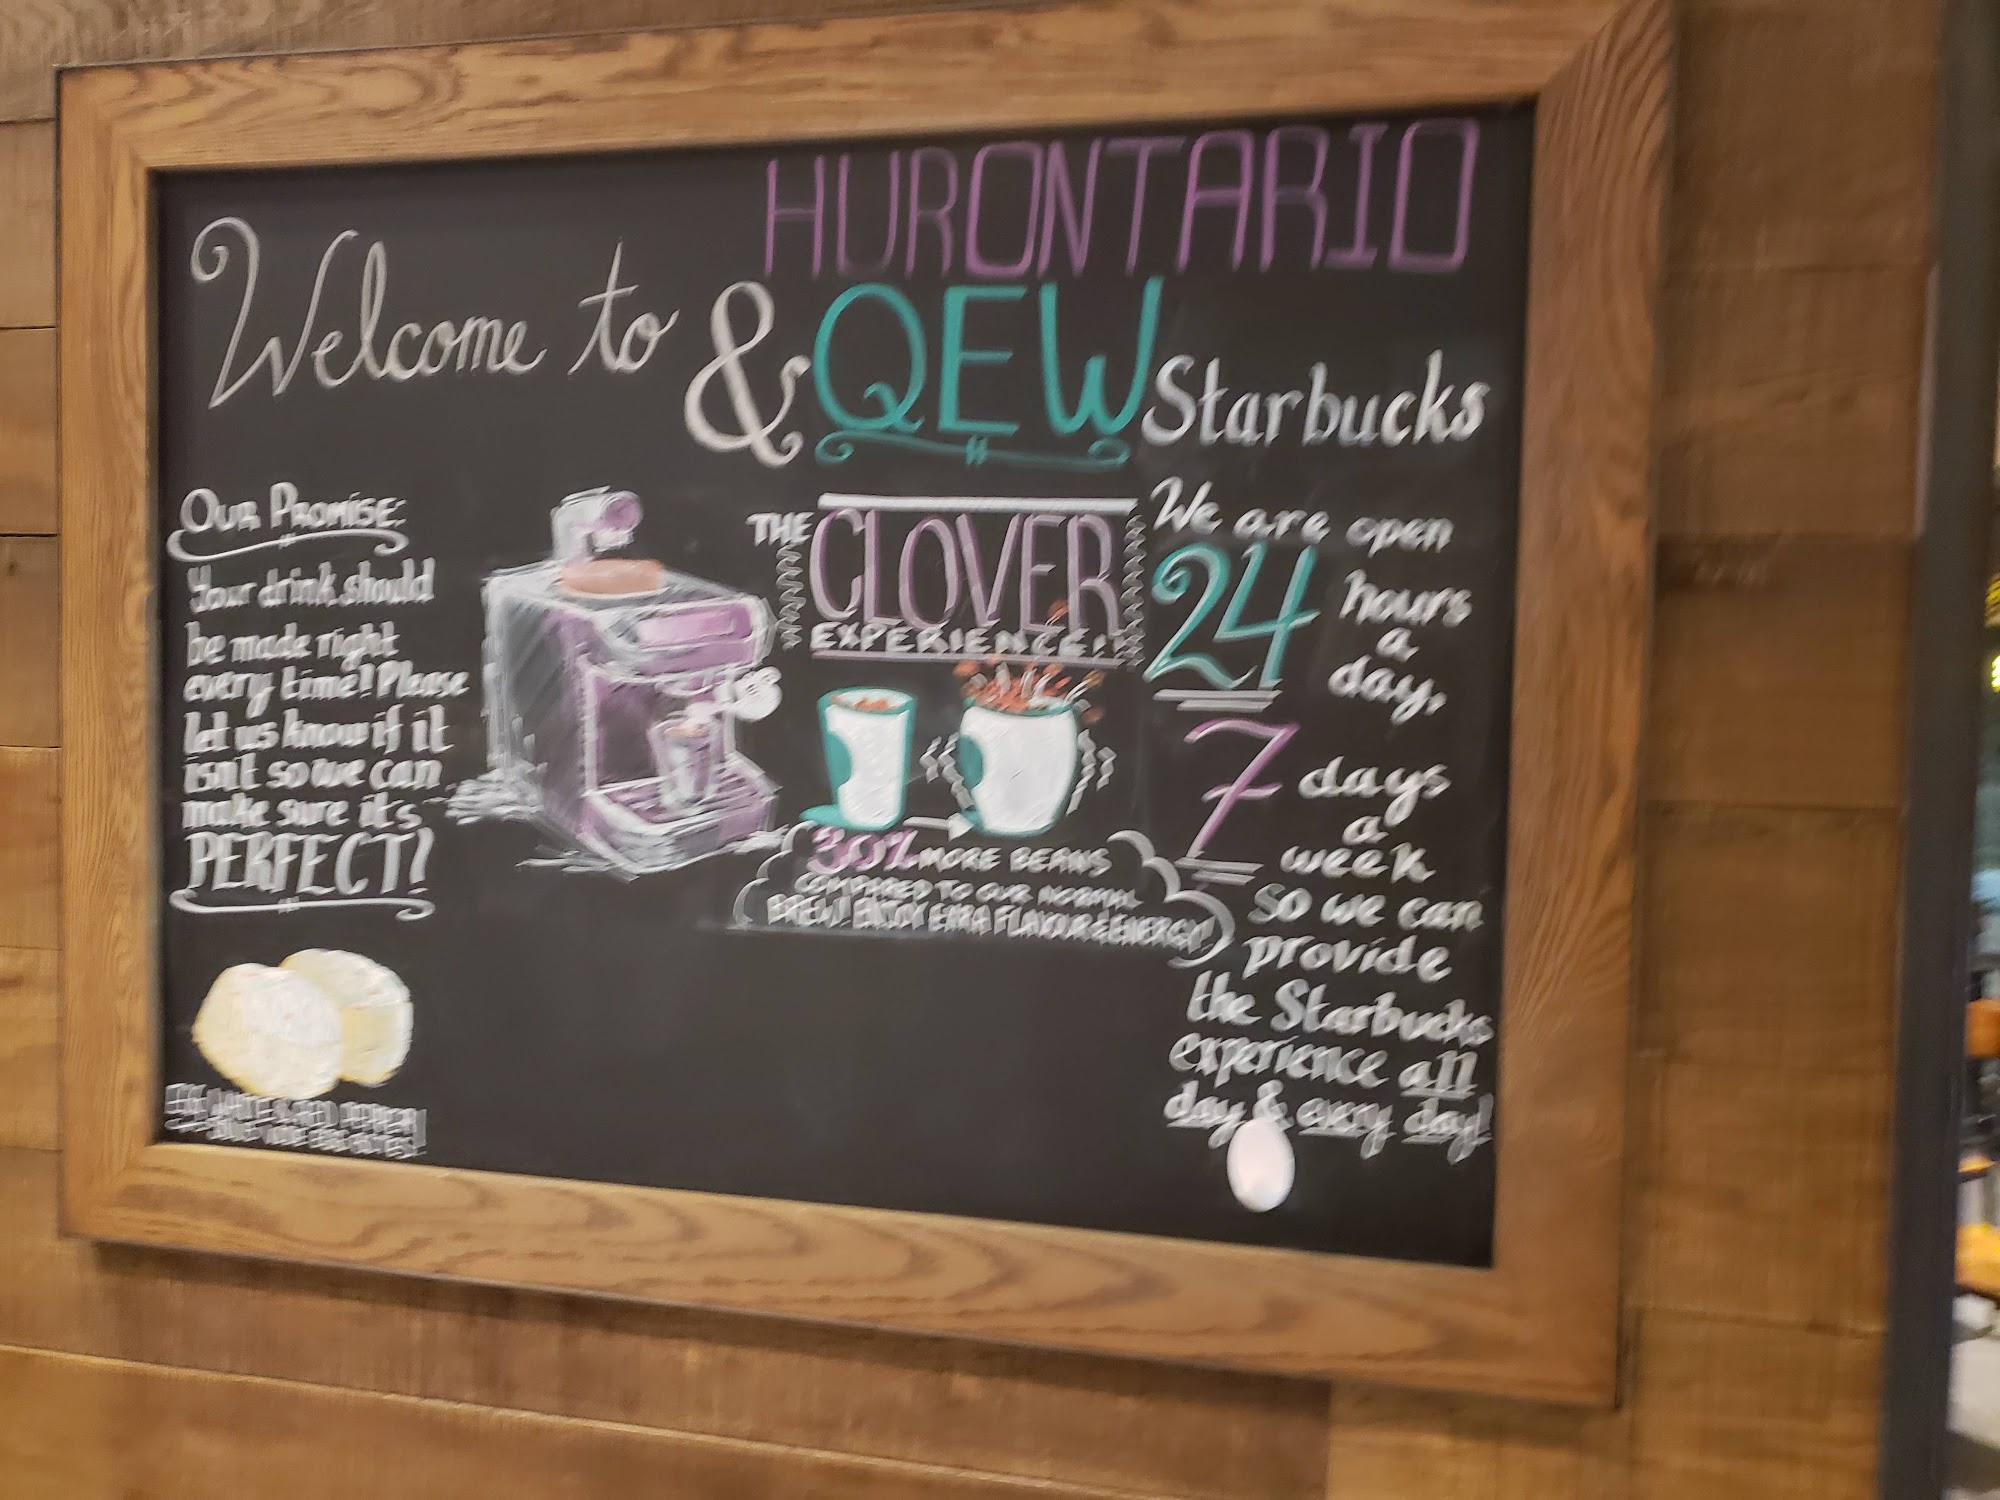 Welcome to
HURONTARIO
& QEW Starbucks
OUR PROMISE:
Your drink should
be made right
every time! Please
let us know if it
isn't so we can
make sure it's
PERFECT!
EGG WHITE & RED PEPPER
THE
CLOVER
EXPERIENCE!
30% MORE BEANS
COMPARED TO OUR NORMAL
BREW! ENJOY EXTRA FLAVOUR & ENERGY!
We are open
24 hours
a
day,
7 days
a
week
so we can
provide
the Starbucks
experience all
day & every day!